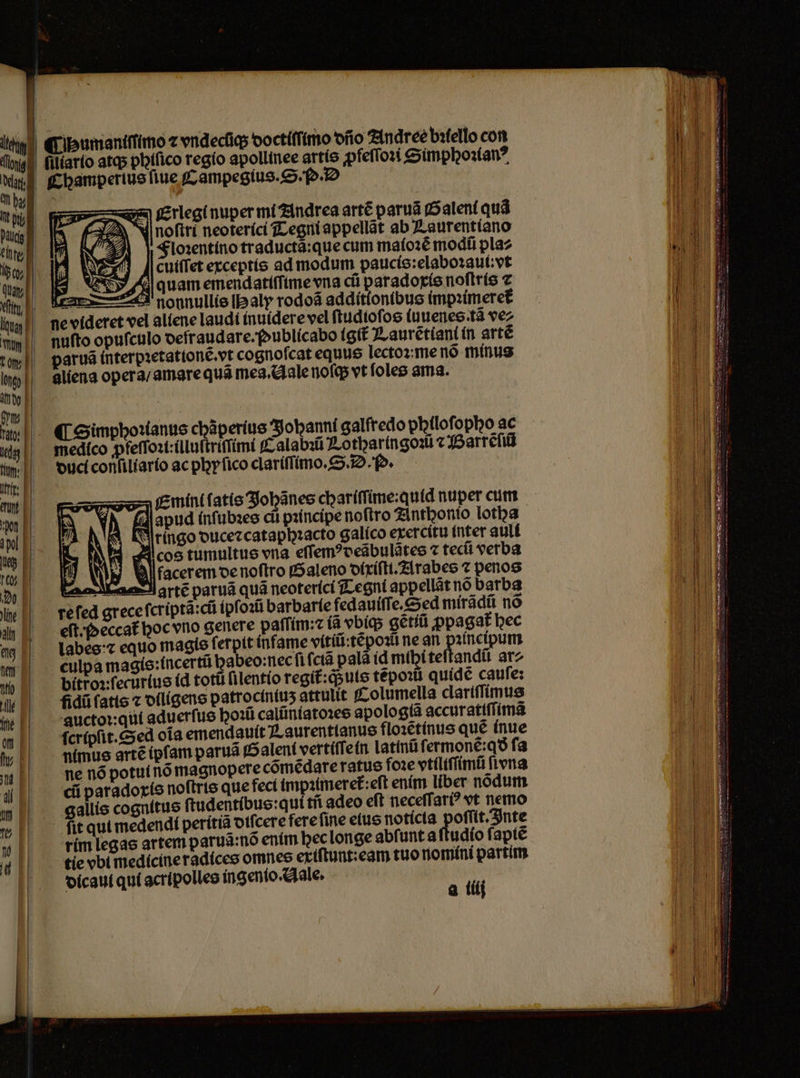 ¶ Humaniſſimo ⁊ vndecũqꝫ doctiſſimo dño Andree bꝛiello con
ſiliario atqꝫ phiſico regio apollinee artis ꝓfeſſoꝛi Simphoꝛianꝰ
Champerius ſiue Campegius. S. P. D
PErlegi nuper mi Andrea artẽ paruã Galeni quã
noſtri neoterici Tegni appellãt ab Laurentiano
Floꝛentino traductã: que cum maioꝛẽ modũ pla⸗
cuiſſet exceptis ad modum paucis: elaboꝛaui: vt
quam emendatiſſime vna cũ paradoxis noſtris ⁊
nonnullis Haly rodoã additionibus impꝛimeret᷑
ne videret vel aliene laudi inuidere vel ſtudioſos iuuenes. tã ve⸗
nuſto opuſculo defraudare. Publicabo igit᷑ Laurẽtiani in artẽ
paruã interpꝛetationẽ. vt cognoſcat equus lectoꝛ: me nõ minus
aliena opera/ amare quã mea. Uale noſqꝫ vt ſoles ama.
¶ Simphoꝛianus chãperius Johanni galfredo philoſopho ac
medico ꝓfeſſoꝛi: illuſtriſſimi Calabꝛũ Lotharingoꝛũ ⁊ Barrẽſiũ
duci conſiliario ac phyſico clariſſimo. S. D. P.
MEmini ſatis Johãnes chariſſime: quid nuper cum
apud inſubꝛes cũ pꝛincipe noſtro Anthonio lotha
ringo duce ⁊ cataphꝛacto galico exercitu inter auli
cos tumultus vna eſſemꝰ deãbulãtes ⁊ tecũ verba
facerem de noſtro Galeno dixiſti. Arabes ⁊ penos
artẽ paruã quã neoterici Tegni appellãt nõ barba
re ſed grece ſcriptã: cũ ipſoꝛũ barbarie fedauiſſe. Sed mirãdũ nõ
eſt. Peccat᷑ hoc vno genere paſſim: ⁊ iã vbiqꝫ gẽtiũ ꝓpagat᷑ hec
labes: ⁊ equo magis ſerpit infame vitiũ: tẽpoꝛũ ne an pꝛincipum
culpa magis: incertũ habeo: nec ſi ſciã palã id mihi teſtandũ ar⸗
bitroꝛ: ſecurius id totũ ſilentio regit᷑: ꝗ̃uis tẽpoꝛũ quidẽ cauſe:
fidũ ſatis ⁊ diligens patrociniuꝫ attulit Columella clariſſimus
auctoꝛ: qui aduerſus hoꝛũ calũniatoꝛes apologiã accuratiſſimã
ſcripſit. Sed oĩa emendauit Laurentianus floꝛẽtinus quẽ inue
nimus artẽ ipſam paruã Galeni vertiſſe in latinũ ſermonẽ: qď ſa
ne nõ potui nõ magnopere cõmẽdare ratus foꝛe vtiliſſimũ ſi vna
cũ paradoxis noſtris que feci impꝛimeret᷑: eſt enim liber nõdum
gallis cognitus ſtudentibus: qui tñ adeo eſt neceſſariꝰ vt nemo
ſit qui medendi peritiã diſcere fere ſine eius noticia poſſit. Inte
rim legas artem paruã: nõ enim hec longe abſunt a ſtudio ſapiẽ
tie vbi medicine radices omnes exiſtunt: eam tuo nomini partim
dicaui qui acripolles ingenio. Uale.
a iiij